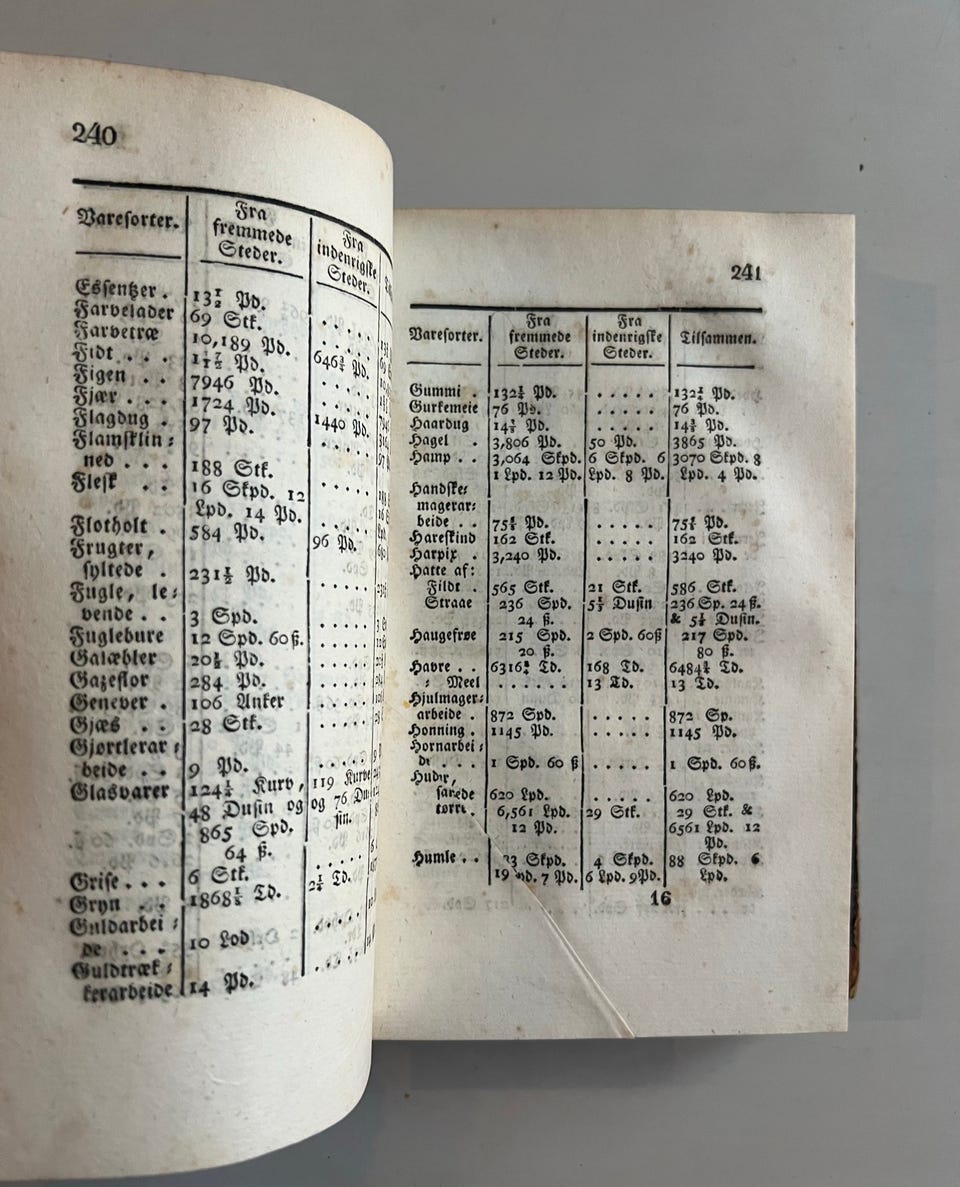 240
Varesorter.
Fra
fremmede
Steder.
Fra
indenrigske
Steder.
Essentzer . 13½ Pd.
Farvelader 69 Stk. . . . . .
Farvetræ 10,189 Pd. . . . . .
Fidt . . . Pd. 646¾ Pd.
Figen . . 7946 Pd. . . . . .
Fjær . . . 1724 Pd. . . . . .
Flagdug . 97 Pd. 1440 Pd.
Flamsklin⸗ . . . . .
ned . . . 188 Stk.
Flesk . . 16 Skpd. 12 . . . . .
Lpd. 14 Pd.
Flotholt . 584 Pd. . . . . .
Frugter, 96 Pd.
syltede . 231½ Pd.
Fugle, le⸗ . . . . .
vende . . 3 Spd.
Fuglebure 12 Spd. 60 ß. . . . . .
Galæbler 20½ Pd. . . . . .
Gazeflor 284 Pd. . . . . .
Genever . 106 Anker . . . . .
Gjæs . . 28 Stk. . . . . .
Gjørtlerar⸗
beide . . 9 Pd. . . . . .
Glasvarer 124½ Kurv, 119 Kurve
48 Dusin og og 76 Du⸗
865 Spd. sin.
64 ß.
Grise . . . 6 Stk. . . . . .
Gryn . . 1868½ Td. 2½ Td.
Guldarbei⸗
de . . . 10 Lod . . . . .
Guldtræk⸗
kerarbeide 14 Pd. . . . . .
241
Varesorter.
Fra
fremmede
Steder.
Fra
indenrigske
Steder.
Tilsammen.
Gummi . 132½ Pd. . . . . . 132½ Pd.
Gurkemeie 76 Pd. . . . . . 76 Pd.
Haardug Pd. . . . . . Pd.
Hagel . 3,806 Pd. 50 Pd. 3865 Pd.
Hamp . . 3,064 Skpd. 6 Skpd. 6 3070 Skpd. 8
1 Lpd. 12 Pd. Lpd. 8 Pd. Lpd. 4 Pd.
Handske⸗
magerar⸗
beide . . Pd. . . . . . Pd.
Hareskind 162 Stk. . . . . . 162 Stk.
Harpix . 3,240 Pd. . . . . . 3240 Pd.
Hatte af:
Fildt . 565 Stk. 21 Stk. 586 Stk.
Straae 236 Spd. 5½ Dusin 236 Sp. 24 ß.
24 ß. & 5½ Dusin.
Haugefrøe 215 Spd. 2 Spd. 60 ß 217 Spd.
20 ß. 80 ß.
Havre . . Td. 168 Td. Td.
⸗ Meel . . . . . . 13 Td. 13 Td.
Hjulmager⸗
arbeide . 872 Spd. . . . . . 872 Sp.
Honning . 1145 Pd. . . . . . 1145 Pd.
Hornarbei⸗
de . . . 1 Spd. 60 ß . . . . . 1 Spd. 60 ß.
Huder,
saltede 620 Lpd. . . . . . 620 Lpd.
tørre. 6,561 Lpd. 29 Stk. 29 Stk. &
12 Pd. 6561 Lpd. 12
Pd.
Humle . . Skpd. 4 Skpd. 88 Skpd. 6
19 7 Pd. 6 Lpd. 9 Pd. Lpd.
16